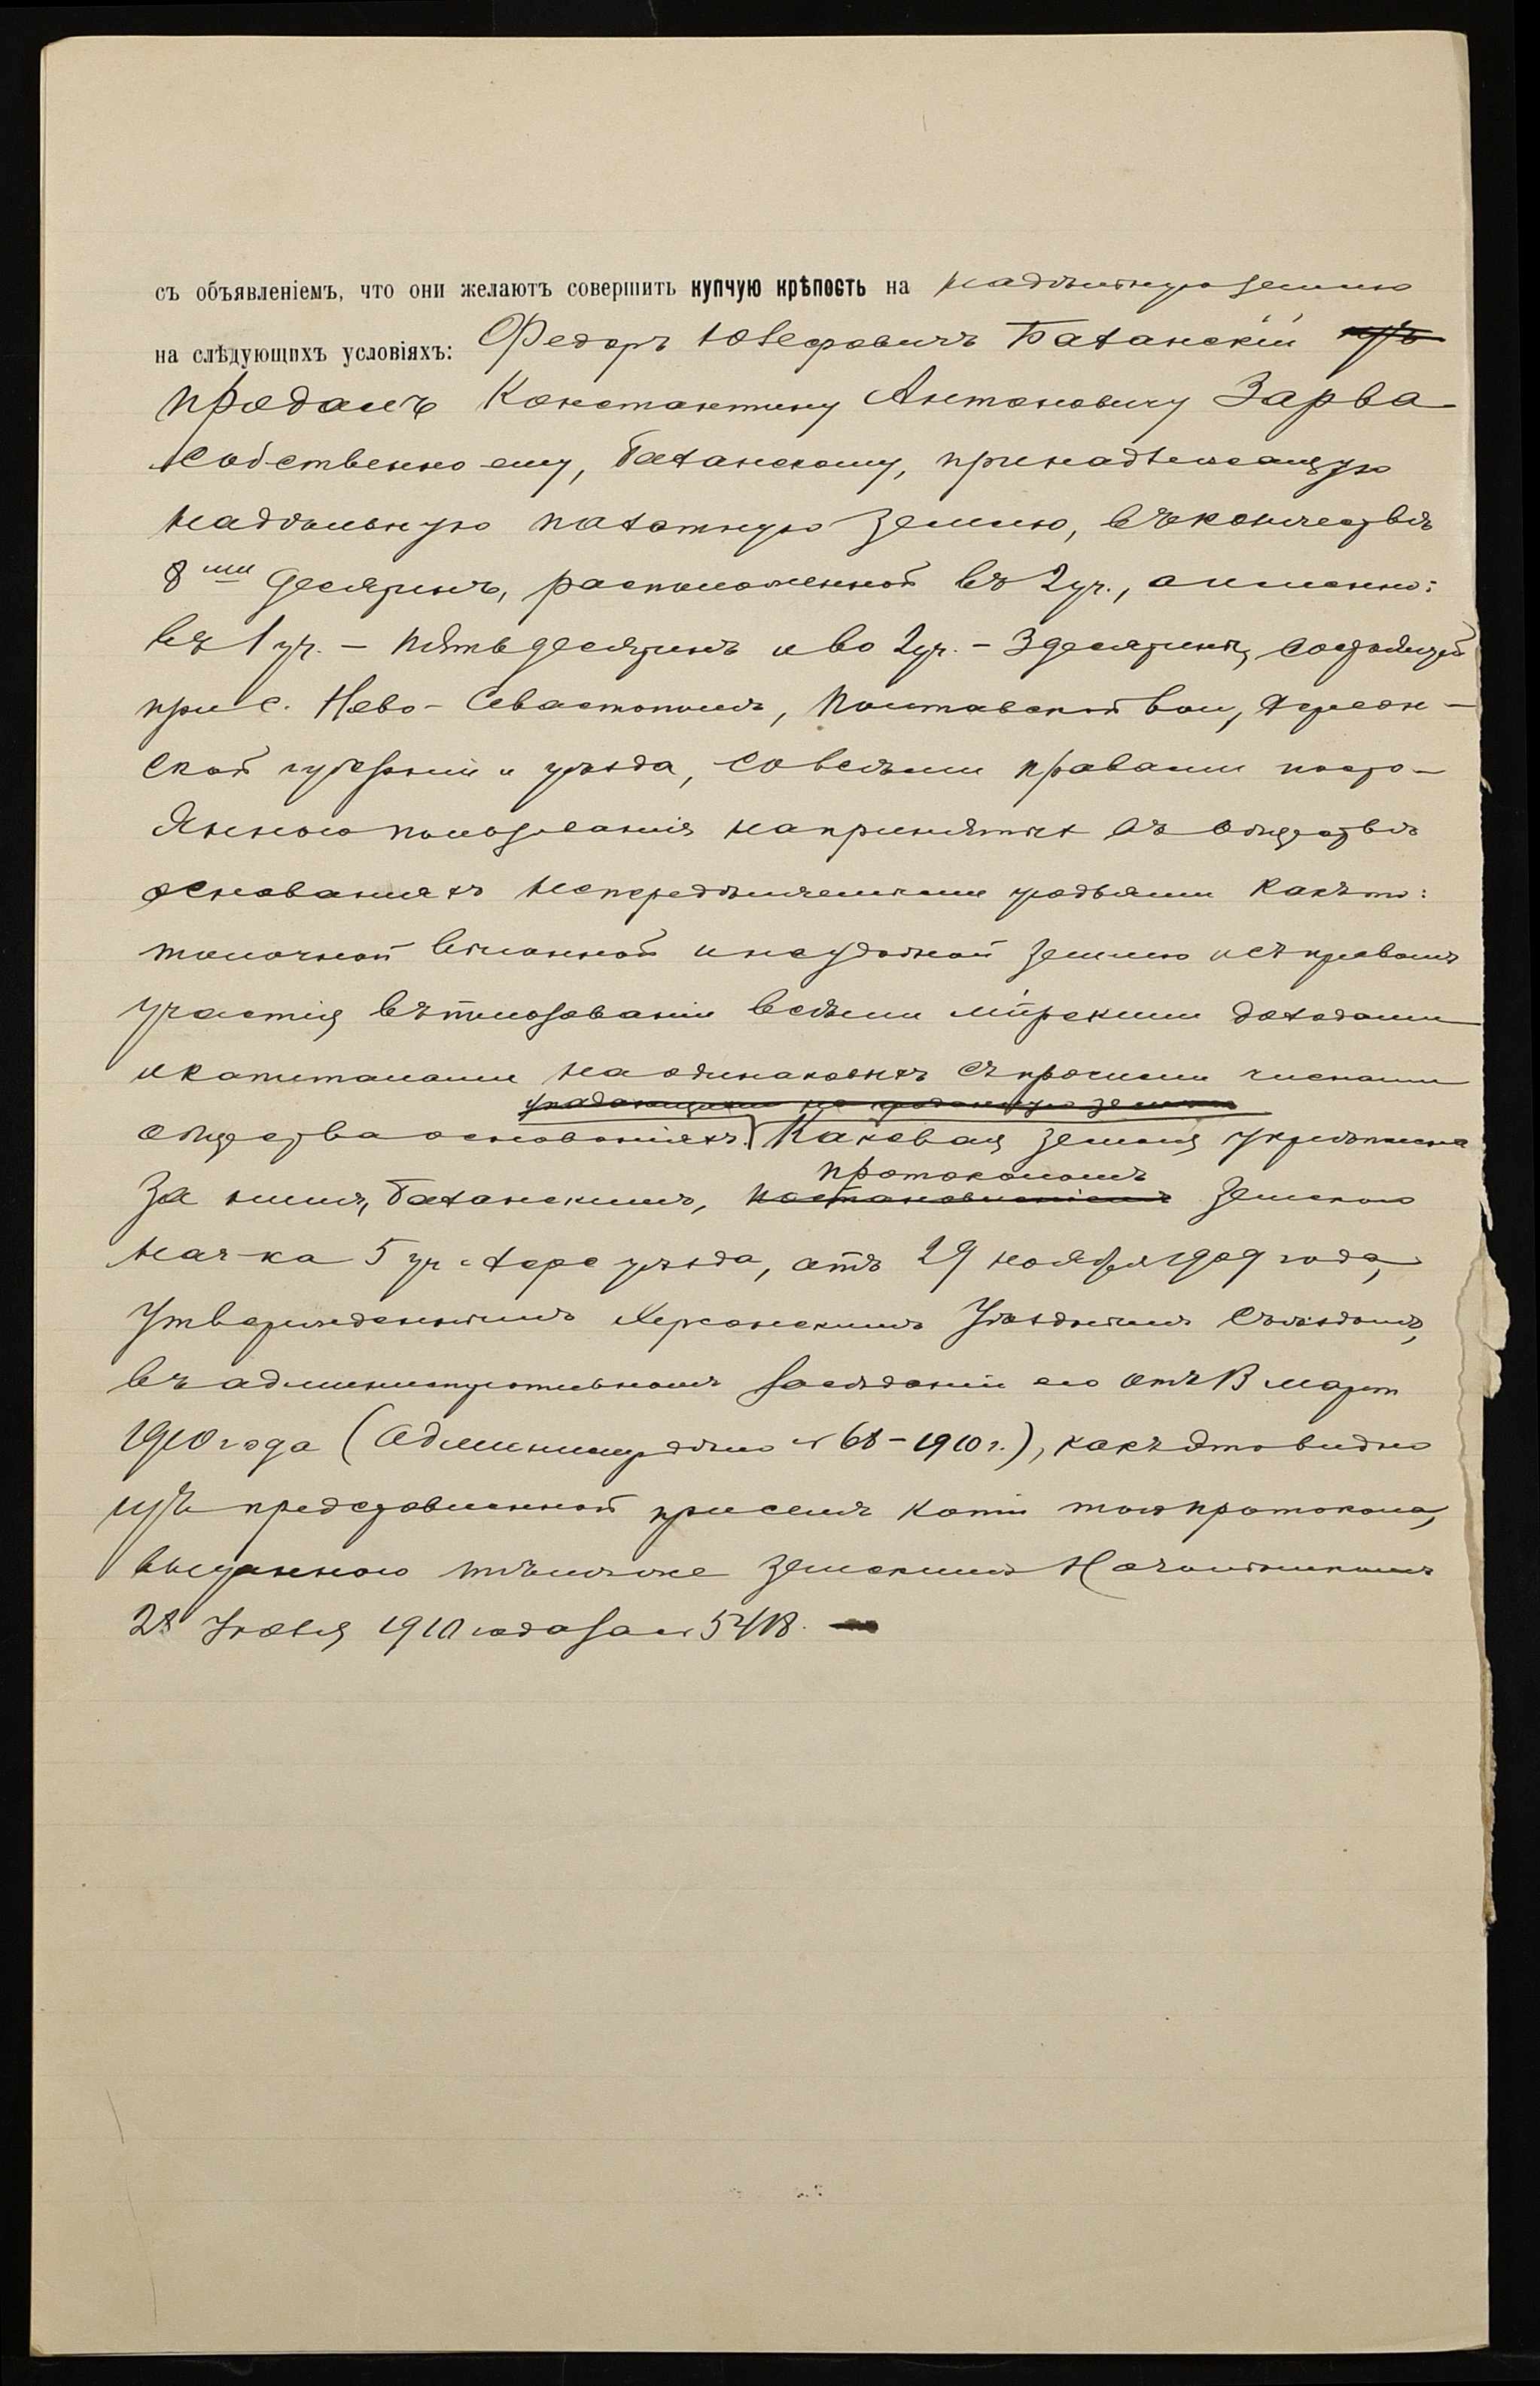 съ объявленіемъ, что они желаютъ совершить купчую крѣпость на надѣльную землю
на слѣдующихъ условіяхъ: Федоръ Юзефовичъ Баханскій
продалъ Константину Антоновичу Зарва
собственно ему, Баханскому, принадлежащую
надѣльную пахотную землю, въ количествѣ
8ми десятинъ, расположенной въ 2 уч., а именно:
въ 1 уч. – пять десятинъ и во 2 уч. – 3 десятины, состоящей
при с. Ново-Севастополѣ, Полтавской вол., Херсон-
ской губерніи и уѣзда, со всѣми правами посто-
яннаго пользованія на принятыхъ въ обществѣ
основаніяхъ непередѣляемыми угодьями какъ то:
толочной выгонной и неудобной землею и съ правомъ
участія въ пользованіи всѣми мірскими доходами
и капиталами на одинаковыхъ съ прочими членами
общества основаніяхъ. Каковая земля укрѣплена
за нимъ, Баханскимъ, постановленіемъ протоколомъ Земскаго
Нач-ка 5 уч. Херс. уѣзда, отъ 29 ноября 1909 года,
утвержденнымъ Херсонскимъ Уѣзднымъ Съѣздомъ,
въ административномъ засѣданіи его отъ 13 марта
1910 года (Админист. дѣло № 68 – 1910 г.), какъ это видно
изъ представленной при семъ копіи того протокола,
выданной тѣмъ же Земскимъ Начальникомъ
28 Іюля 1910 года за № 5418.